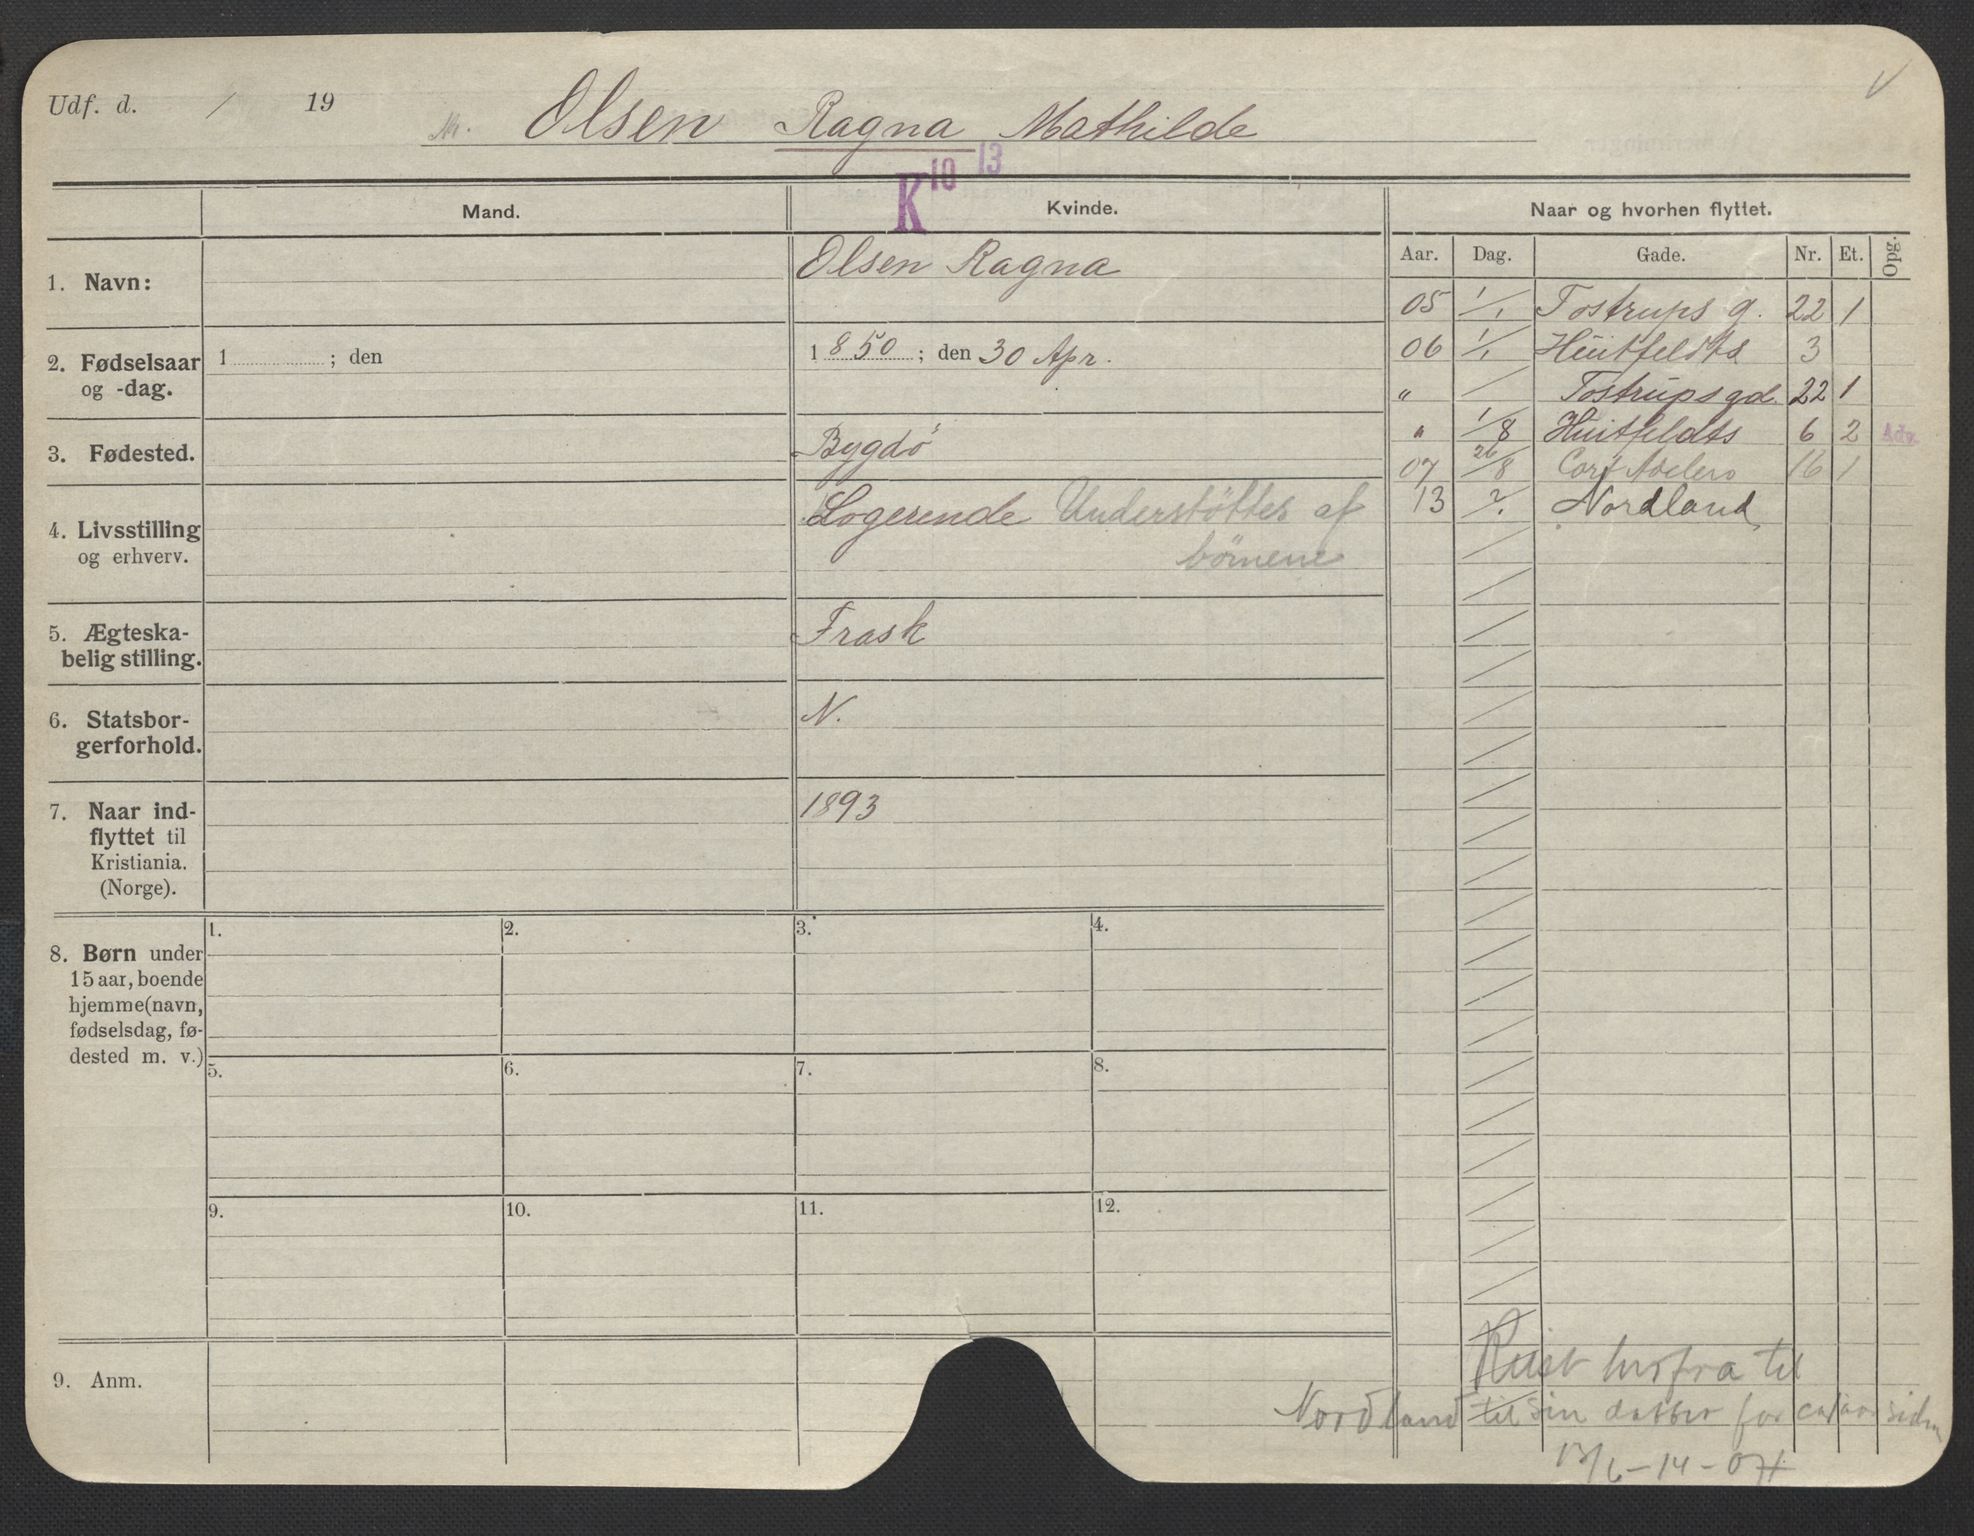 Udf. d. / 19
Olsen Ragna Mathilde
K 10 13
Mand.
Kvinde.
Naar og hvorhen flyttet.
Aar. Dag. Gade. Nr. Et. Opg.
1. Navn:
Olsen Ragna
2. Fødselsaar og -dag.
1 ; den
1 850 ; den 30 Apr.
3. Fødested.
Bygdö
4. Livsstilling og erhverv.
Logerende Understöttes af
börnene
5. Ægteska-
belig stilling.
Frask
6. Statsbor-
gerforhold.
N.
7. Naar ind-
flyttet til
Kristiania.
(Norge).
1893
05 1/1 Tostrups g. 22 1
06 1/1 Huitfeldts 3
" / Tostrupsgd. 22 1
" 1/8 Huitfeldts 6 2 Adv.
07 26/8 Cort Adelers 16 1
13 ?/. Nordland
8. Børn under
15 aar, boende
hjemme (navn,
fødselsdag, fø-
dested m. v.)
1. 2. 3. 4.
5. 6. 7. 8.
9. 10. 11. 12.
9. Anm.
Reist herfra til
Nordland til sin datter for ca 1 aar siden